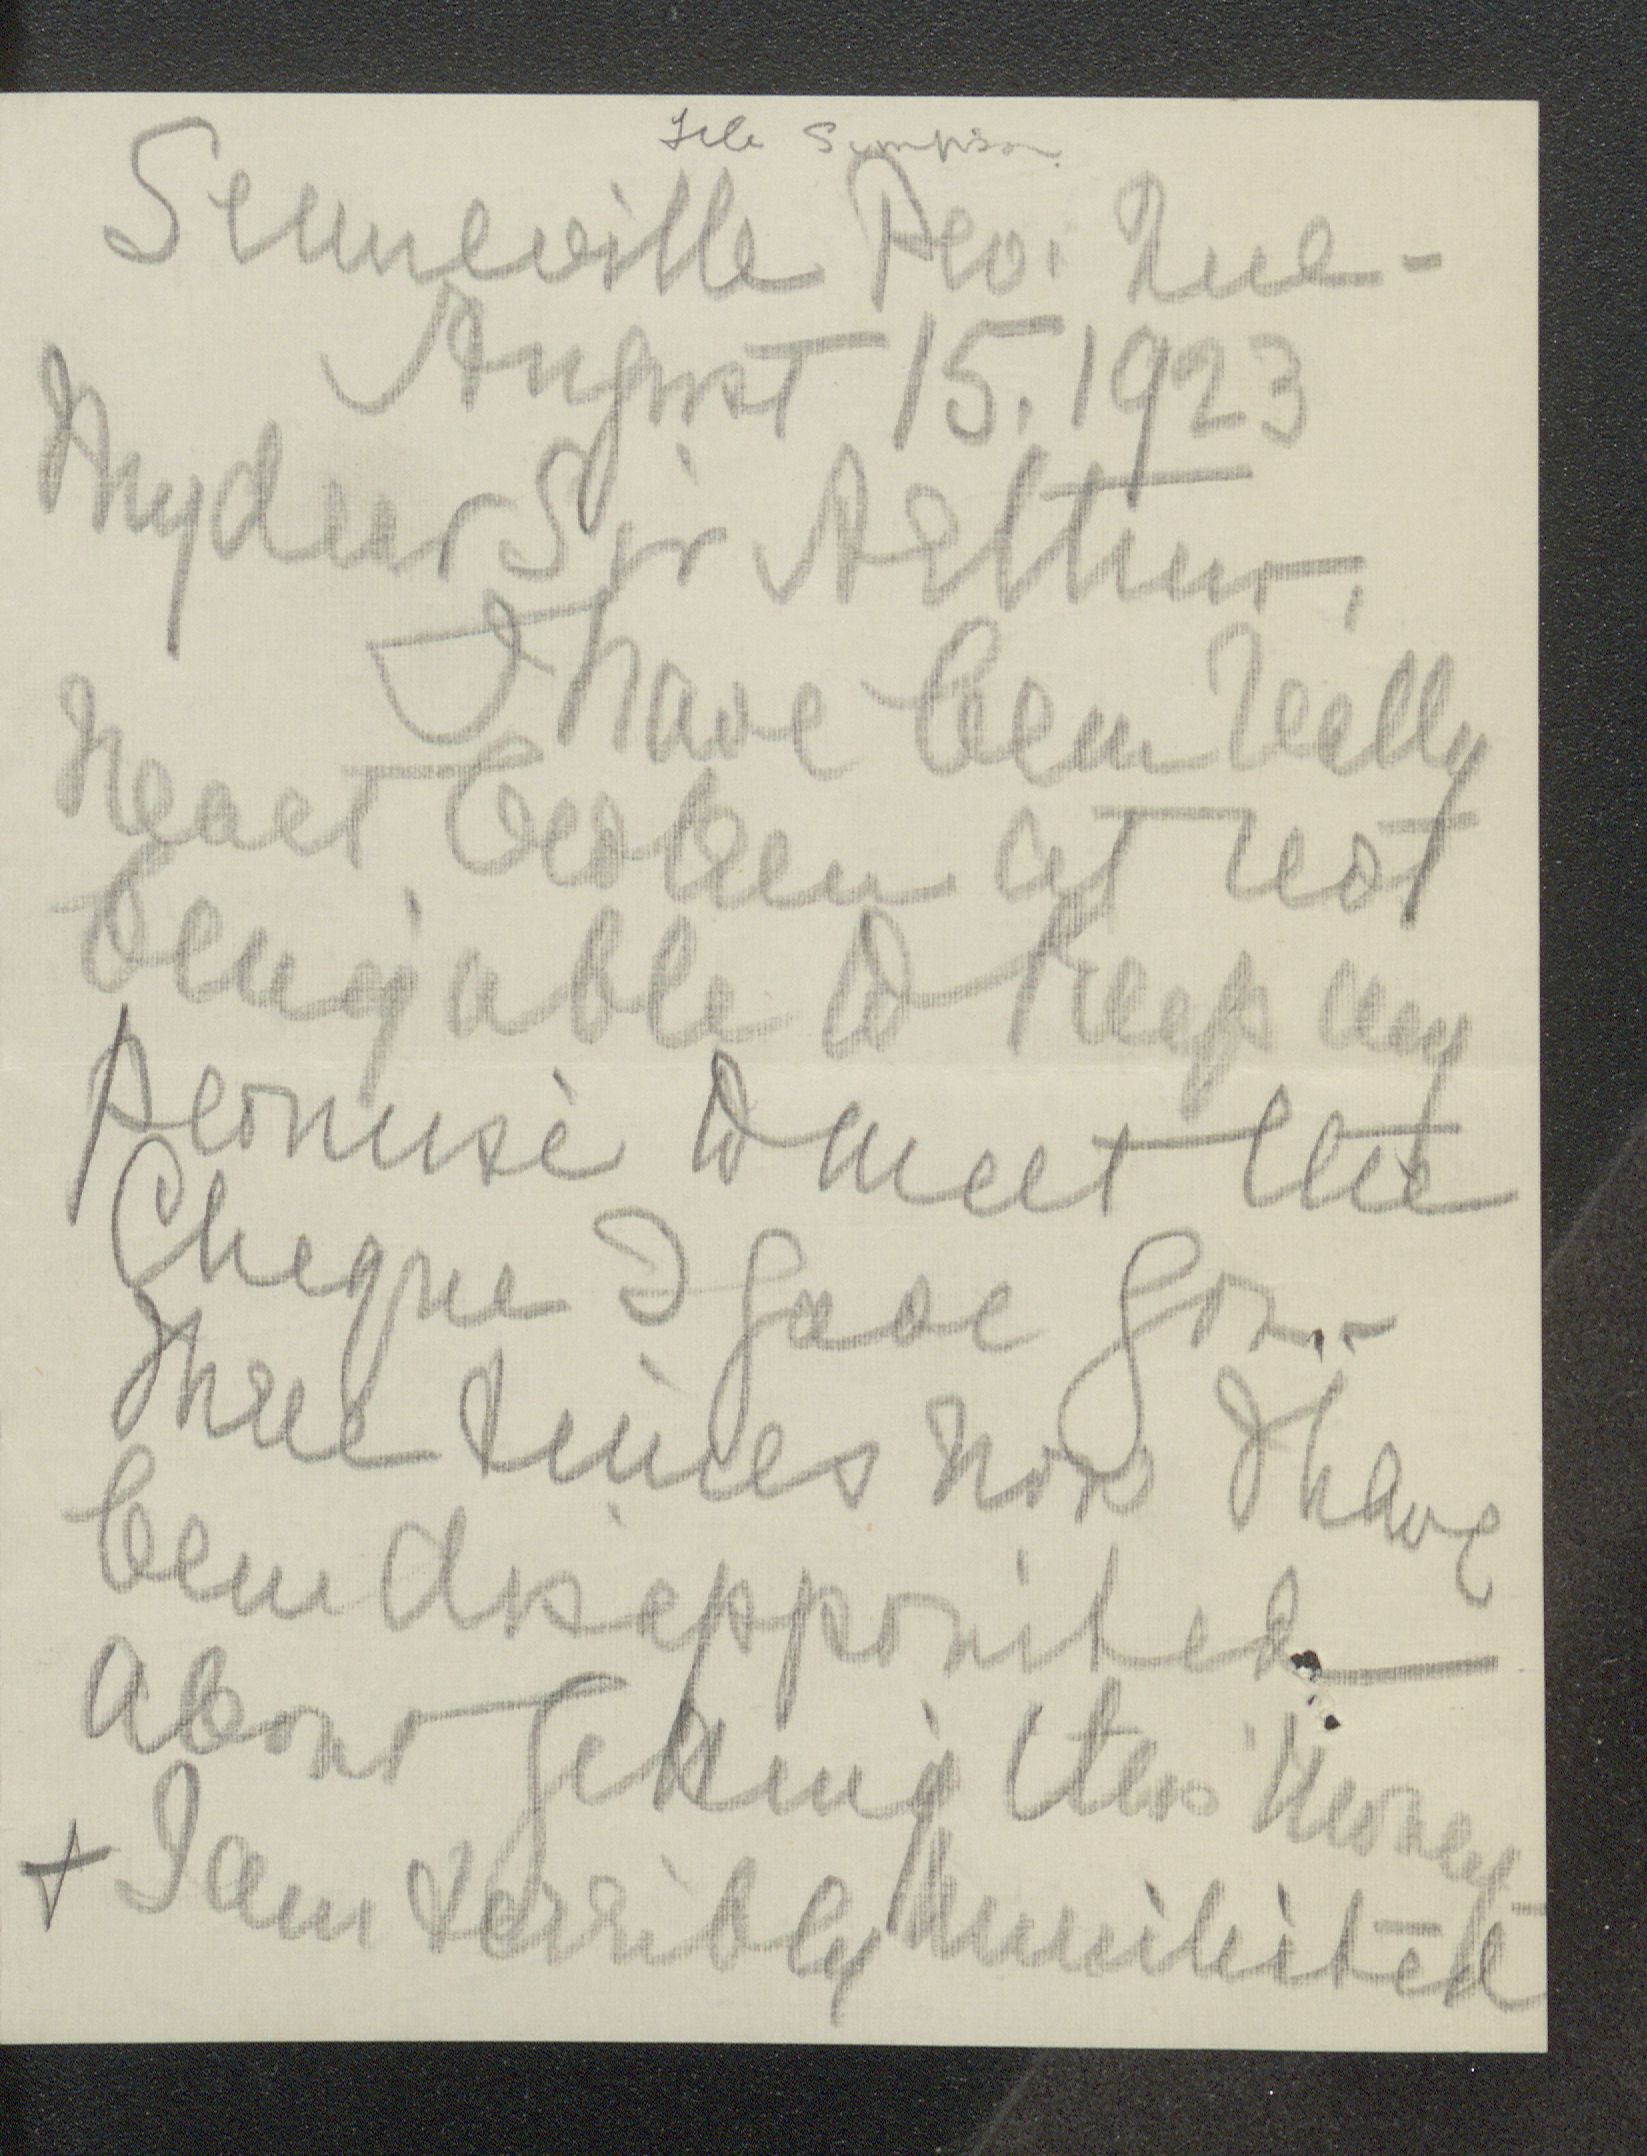 File Simpson.
Senneville Pro. Que-
August 15. 1923
My dear Sir Arthur,
I have been really
heart broken at not
being able to keep my
promise to meet the
Cheque I gave you..-
Three times now I have
been disappointed
about getting this money-
+ I am terribly humiliated